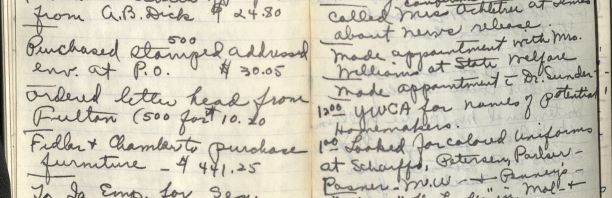 from A.B. Dick $ 24.80
500
Purchased stamped addressed
env. at P.O. $ 30.05
ordered letter head from
Fulton (500 for $10.20
Fidlar & Chambers to purchase
furniture - $ 441.25
To Ia Emp. for Sec.
called Mrs. at
about news release.
Made appointment with Mrs.
Williams at State Welfare
Made appointment c Dr. Sunder-
12:00 YWCA for names of potential
Homemakers.
1:00 Looked for colored uniforms
at Scharffs, Petersen, Parker -
Posner - M.W. - + Penneys -
in Mol - +